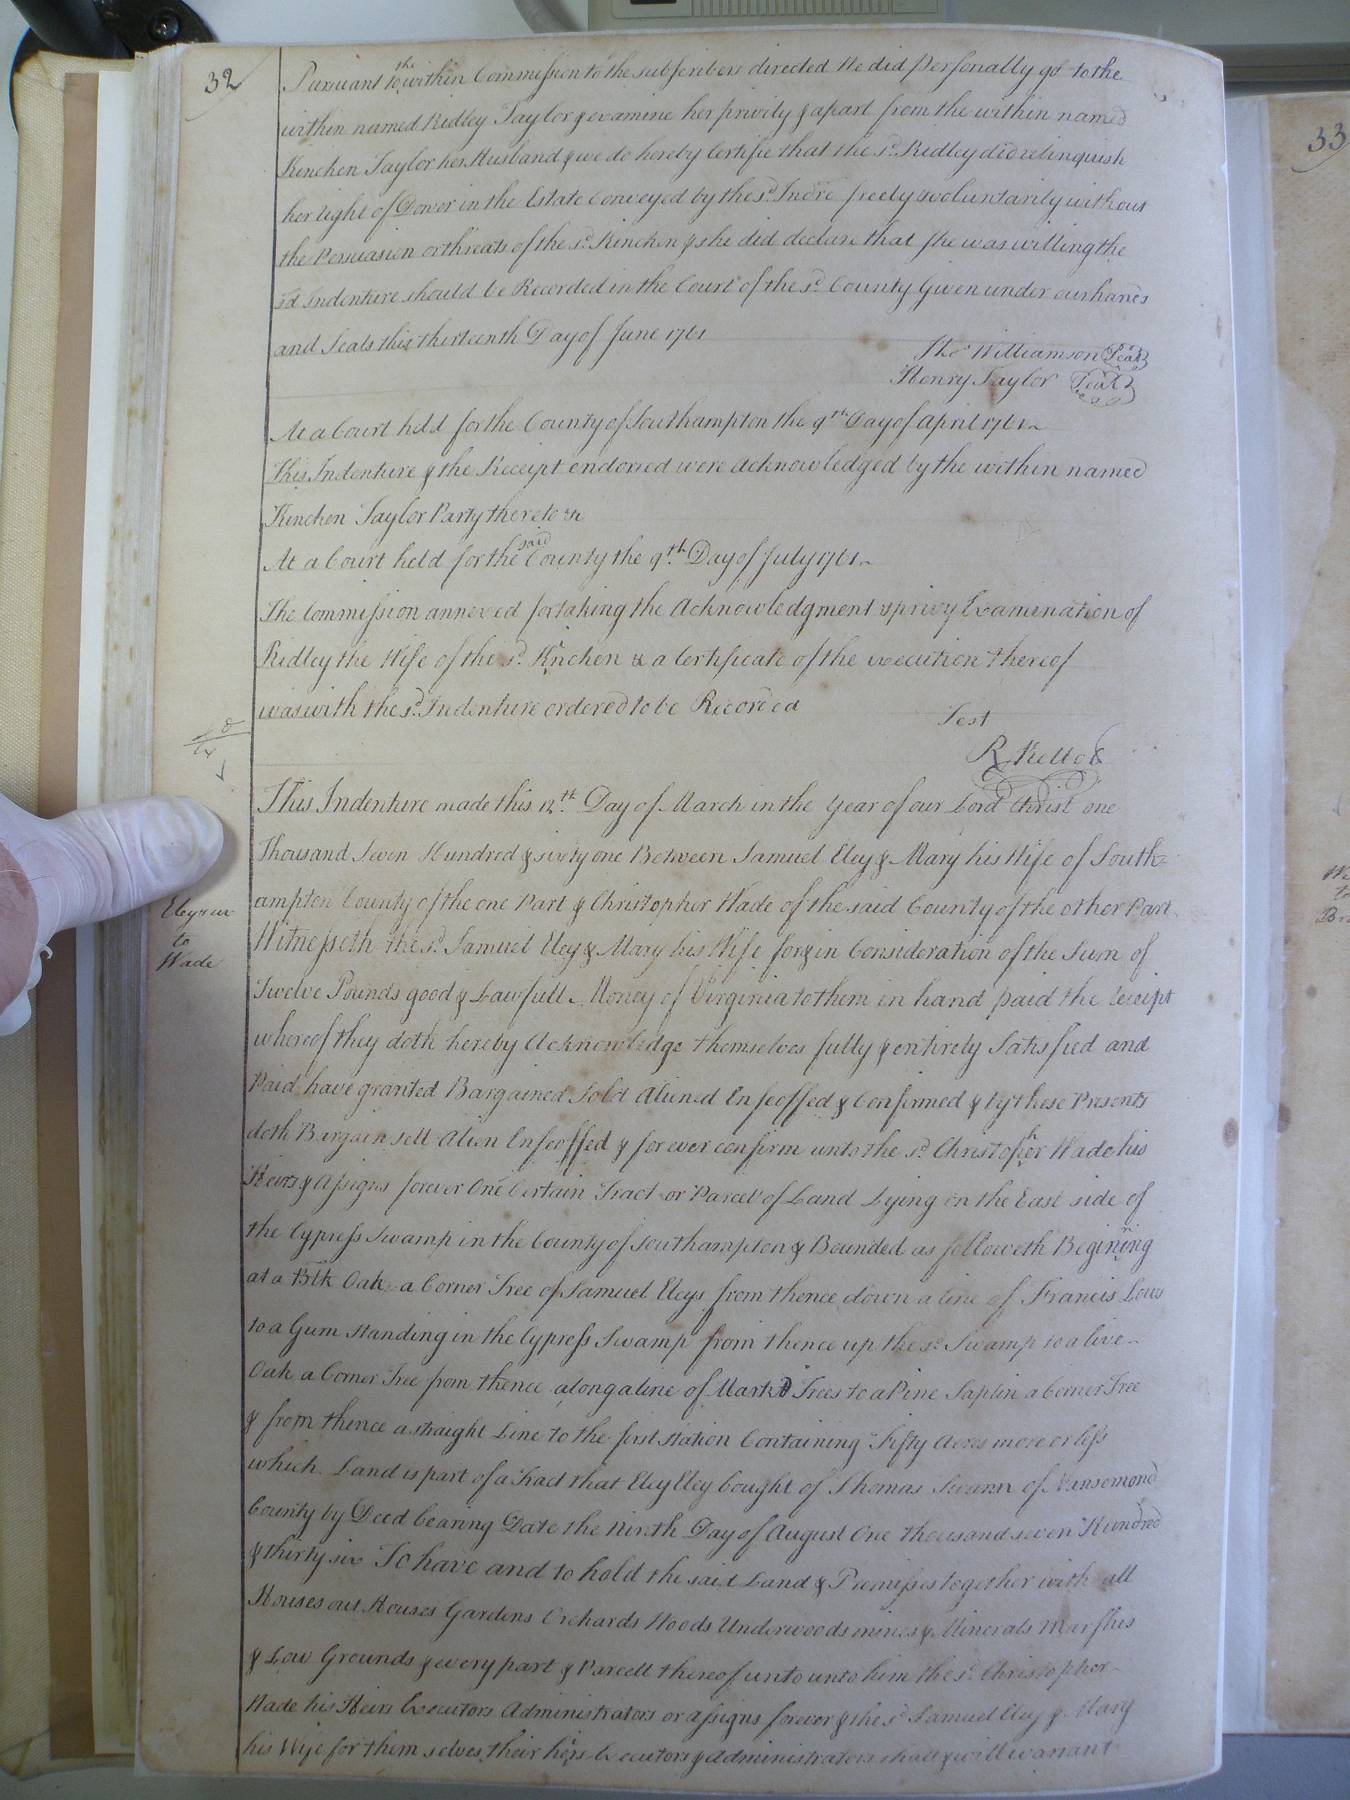 32
Pursuant to the within Commission to the subscribers directed We did Personally go to the
within named Ridley Taylor & examine her privily & apart from the within named
Kinchen Taylor her Husband & we do hereby Certifie that the sd. Ridley did relinquish
her right of Dower in the Estate Conveyed by the sd. Indre freely & voluntarily without
the Persuasion or threats of the sd. Kinchen & she did declare that she was willing the
sd Indenture should be Recorded in the Court of the sd. County Given under our hands
and Seals this thirteenth Day of June 1761
Tho Williamson Seal
Henry Taylor Seal
At a Court held for the County of Southampton the 9th Day of April 1761
This Indenture & the Receipt endorsed were Acknowledged by the within named
Kinchen Taylor Party thereto &
At a Court held for the said County the 9th Day of July 1761
The Commission annexed for taking the Acknowledgment & privy Examination of
Ridley the Wife of the sd. Kinchen & a Certificate of the execution thereof
was with the sd. Indenture ordered to be Recorded
Test
R Kello
This Indenture made this 12th Day of March in the Year of our Lord Christ one
Thousand Seven Hundred & sixty one Between Samuel Eley & Mary his Wife of South=
ampton County of the one Part & Christopher Wade of the said County of the other Part
Eley & ux
to
Wade
Witnesseth the sd. Samuel Eley & Mary his Wife for & in Consideration of the Sum of
Twelve Pounds good & Lawfull Money of Virginia to them in hand paid the receipt
whereof they doth hereby Acknowledge themselves fully & entirely Satisfied and
Paid have granted Bargained Sold Aliened Enfeoffed & Confirmed & by these Presents
doth Bargain sell Alien Enfeoffed & forever confirm unto the sd. Christopher Wade his
Heirs & Assigns forever One Certain Tract or Parcel of Land Lying on the East side of
the Cypress Swamp in the County of Southampton & Bounded as followeth Begining
at a Blk Oak a Corner Tree of Samuel Eleys from thence down a line of Francis Lows
to a Gum standing in the Cypress Swamp from thence up the sd. Swamp to a live
Oak a Corner Tree from thence along a line of Markd Trees to a Pine Saplin a Corner Tree
& from thence a straight Line to the first station Containing Fifty Acres more or less
which Land is part of a Tract that Eley Eley bought of Thomas Swann of Nansemond
County by Deed bearing Date the Ninth Day of August One thousand seven Hundred
& thirty six To have and to hold the said Land & Premisses together with all
Houses out Houses Gardens Orchards Woods Underwoods mines & Minerals Marshes
& Low Grounds & every part & Parcell thereof unto unto him the sd. Christopher
Wade his Heirs Executors Administrators or assigns forever & the sd. Samuel Eley & Mary
his Wife for them selves their heirs Executors & Administrators shall & will warrant
33
to